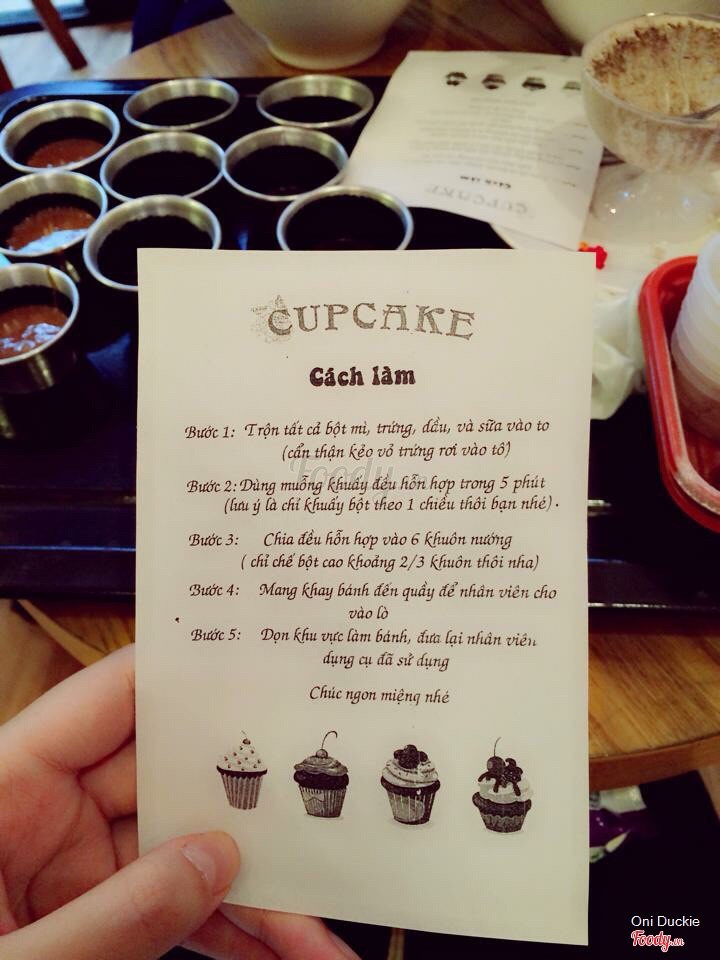 CUPCAKE
Cách làm
CUPCAKE
Cách làm
Bước 1: Trộn tất cả bột mì, trứng, dầu, và sữa vào to
(cẩn thận kẻo vỏ trứng rơi vào tô)
Foody
Bước 2: Dùng muỗng khuấy đều hỗn hợp trong 5 phút
(lưu ý là chỉ khuấy bột theo 1 chiều thôi bạn nhé).
Bước 3: Chia đều hỗn hợp vào 6 khuôn nướng
( chỉ chế bột cao khoảng 2/3 khuôn thôi nha)
Bước 4: Mang khay bánh đến quầy để nhân viên cho
vào lò
Bước 5: Dọn khu vực làm bánh, đưa lại nhân viên
dụng cụ đã sử dụng
Chúc ngon miệng nhé
Oni Duckie
Foody.vn